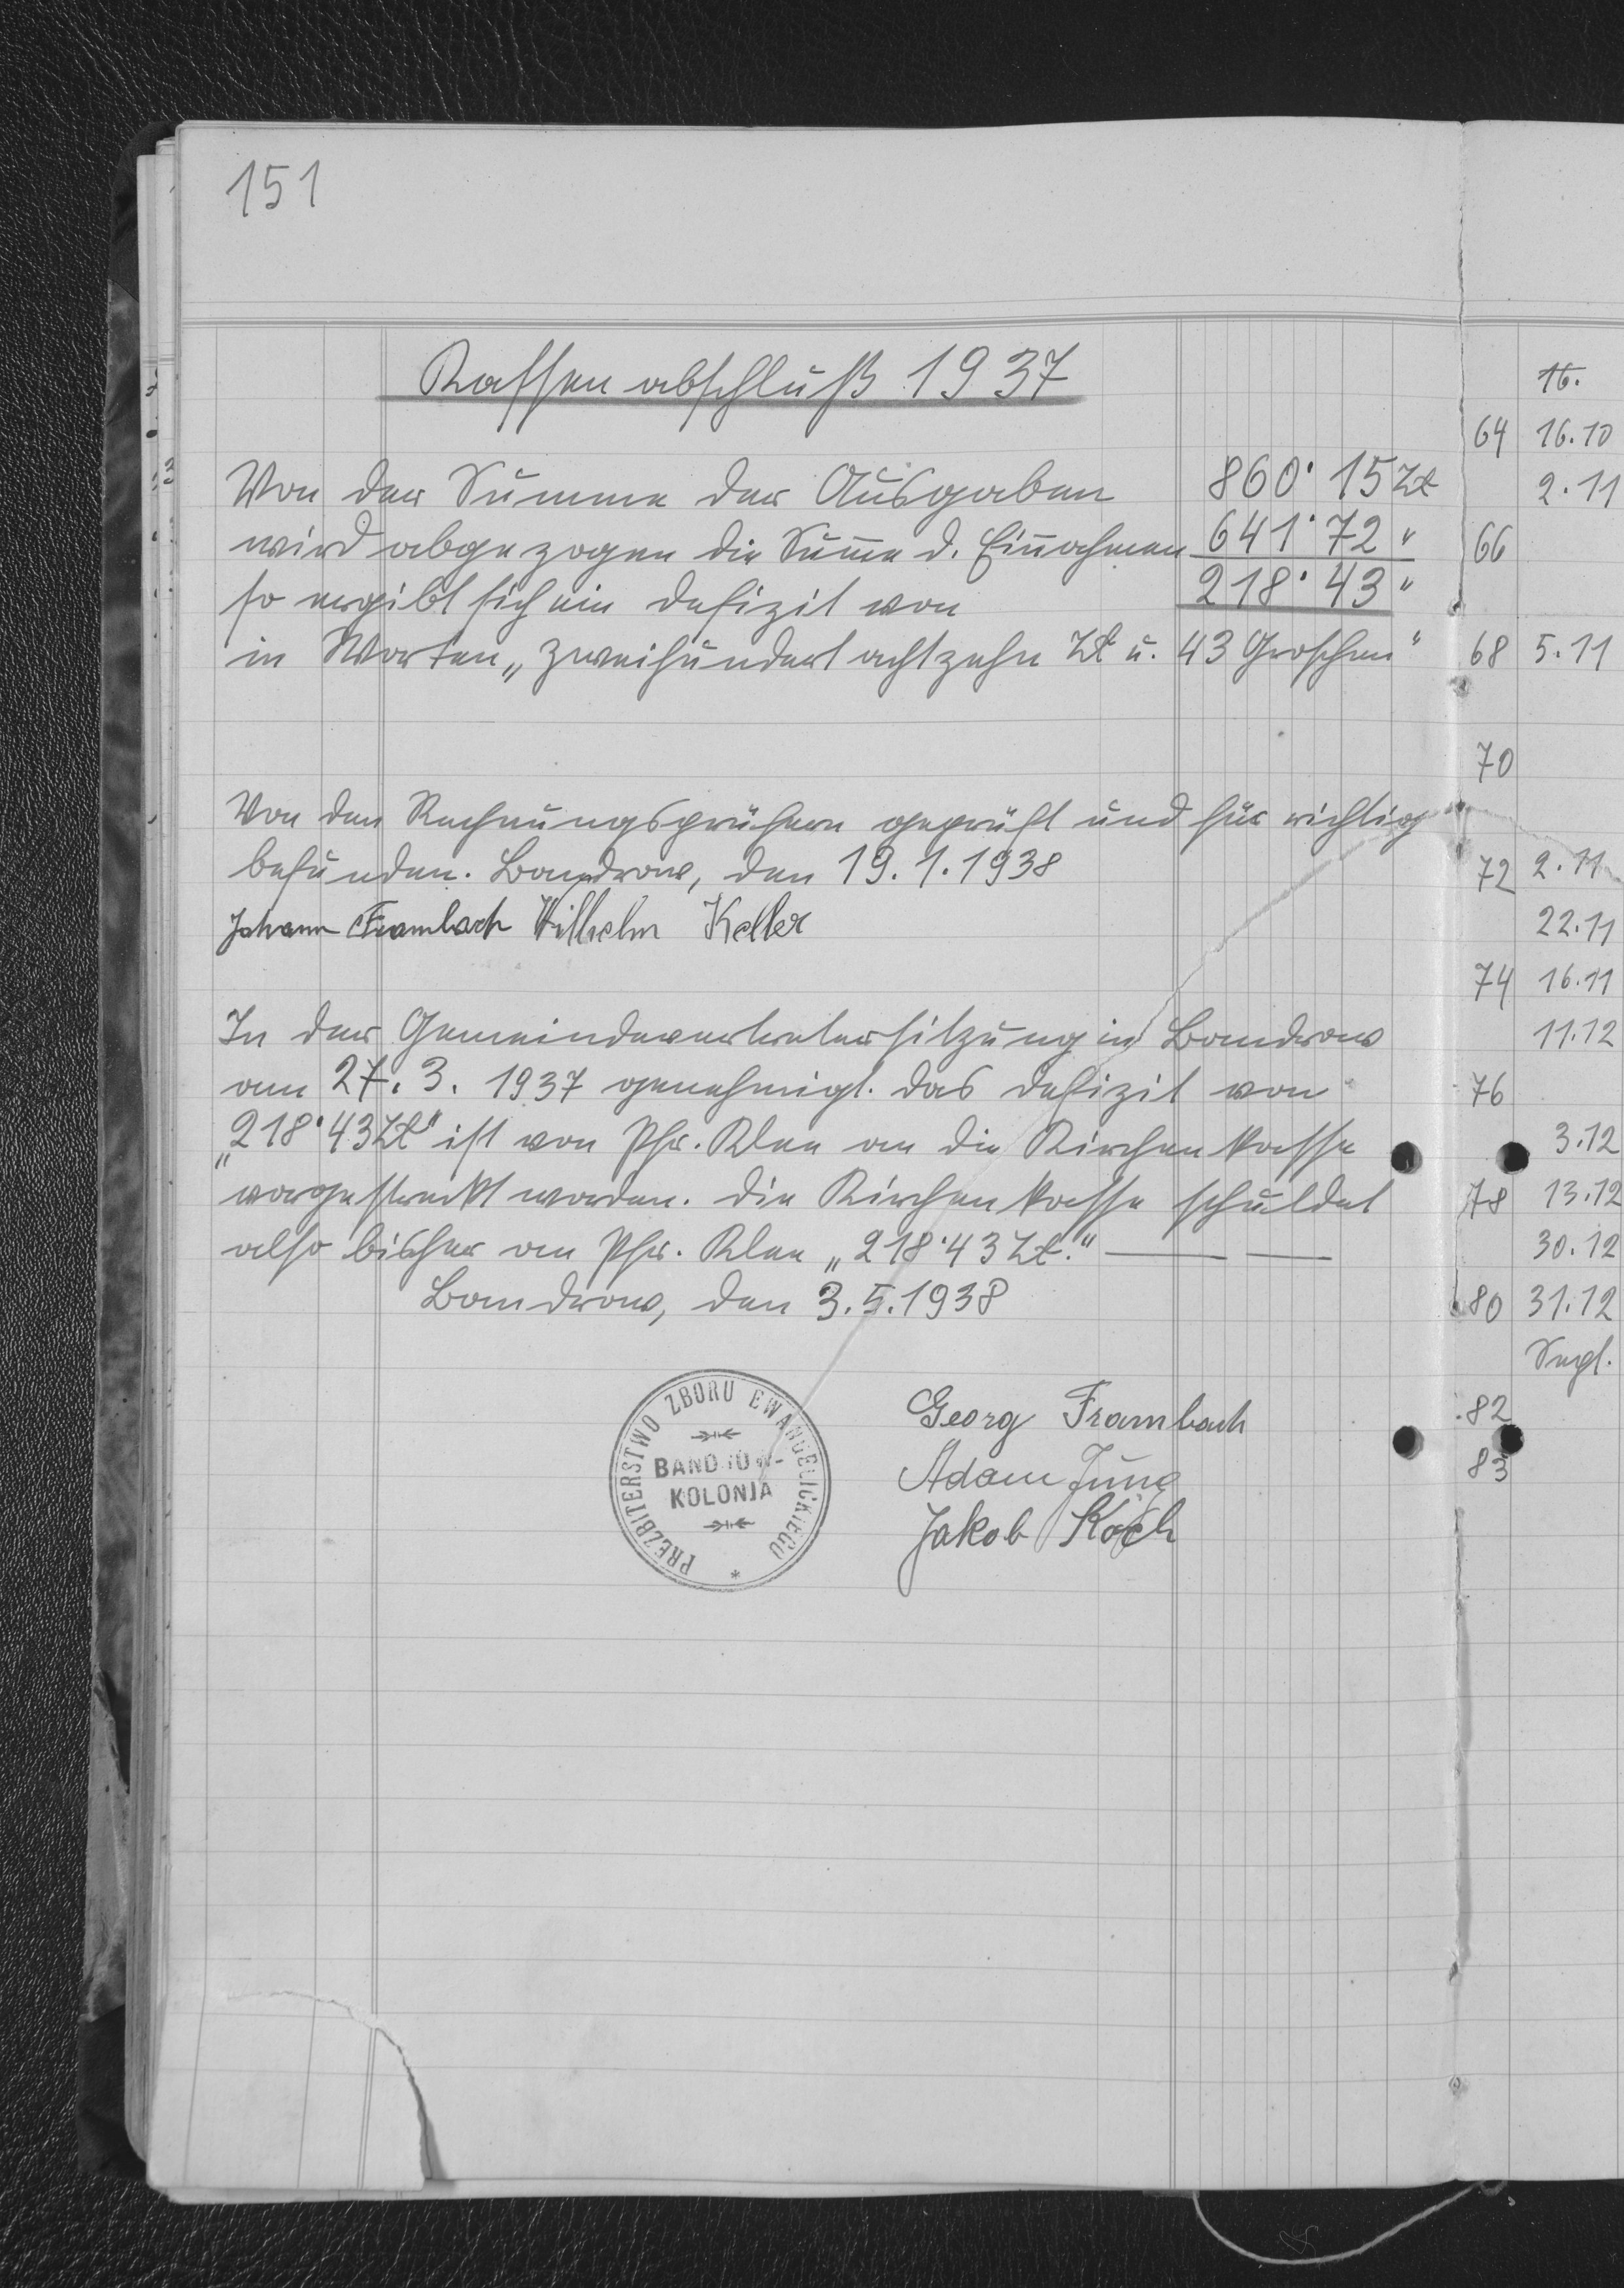 151
Kassenabschluß 1937
Von der Summe der Ausgaben 860·15 Zł
wird abgezogen die Sum̄e d. Ein̄ahmen 641·72 "
so ergibt sich ein Defizit von 218·43 "
in Worten „zweihundertachtzehn Zł u. 43 Groschen"
Von den Rechnungsprüfern geprüft und für richtig
befunden. Bandrow, den 19.1.1938
Johann Frambach Wilhelm Keller
In der Gemeindevertretersitzung in Bandrow
am 27.3.1937 genehmigt. Das Defizit von
„218·43 Zł" ist von Pfr. Klee an die Kirchenkasse
vorgestreckt worden. Die Kirchenkasse schuldet
also bisher an Pfr. Klee „218·43 Zł."
Bandrow, den 3.5.1938
PREZBITERSTWO ZBORU EWANGELICKIEGO
BANDROW-
KOLONJA
Georg Frambach
Adam Jung
Jakob Koch
16.
64 16.10
2.11
66
68 5.11
70
72 2.11
22.11
74 16.11
11.12
76
3.12
78 13.12
30.12
80 31.12
82
83